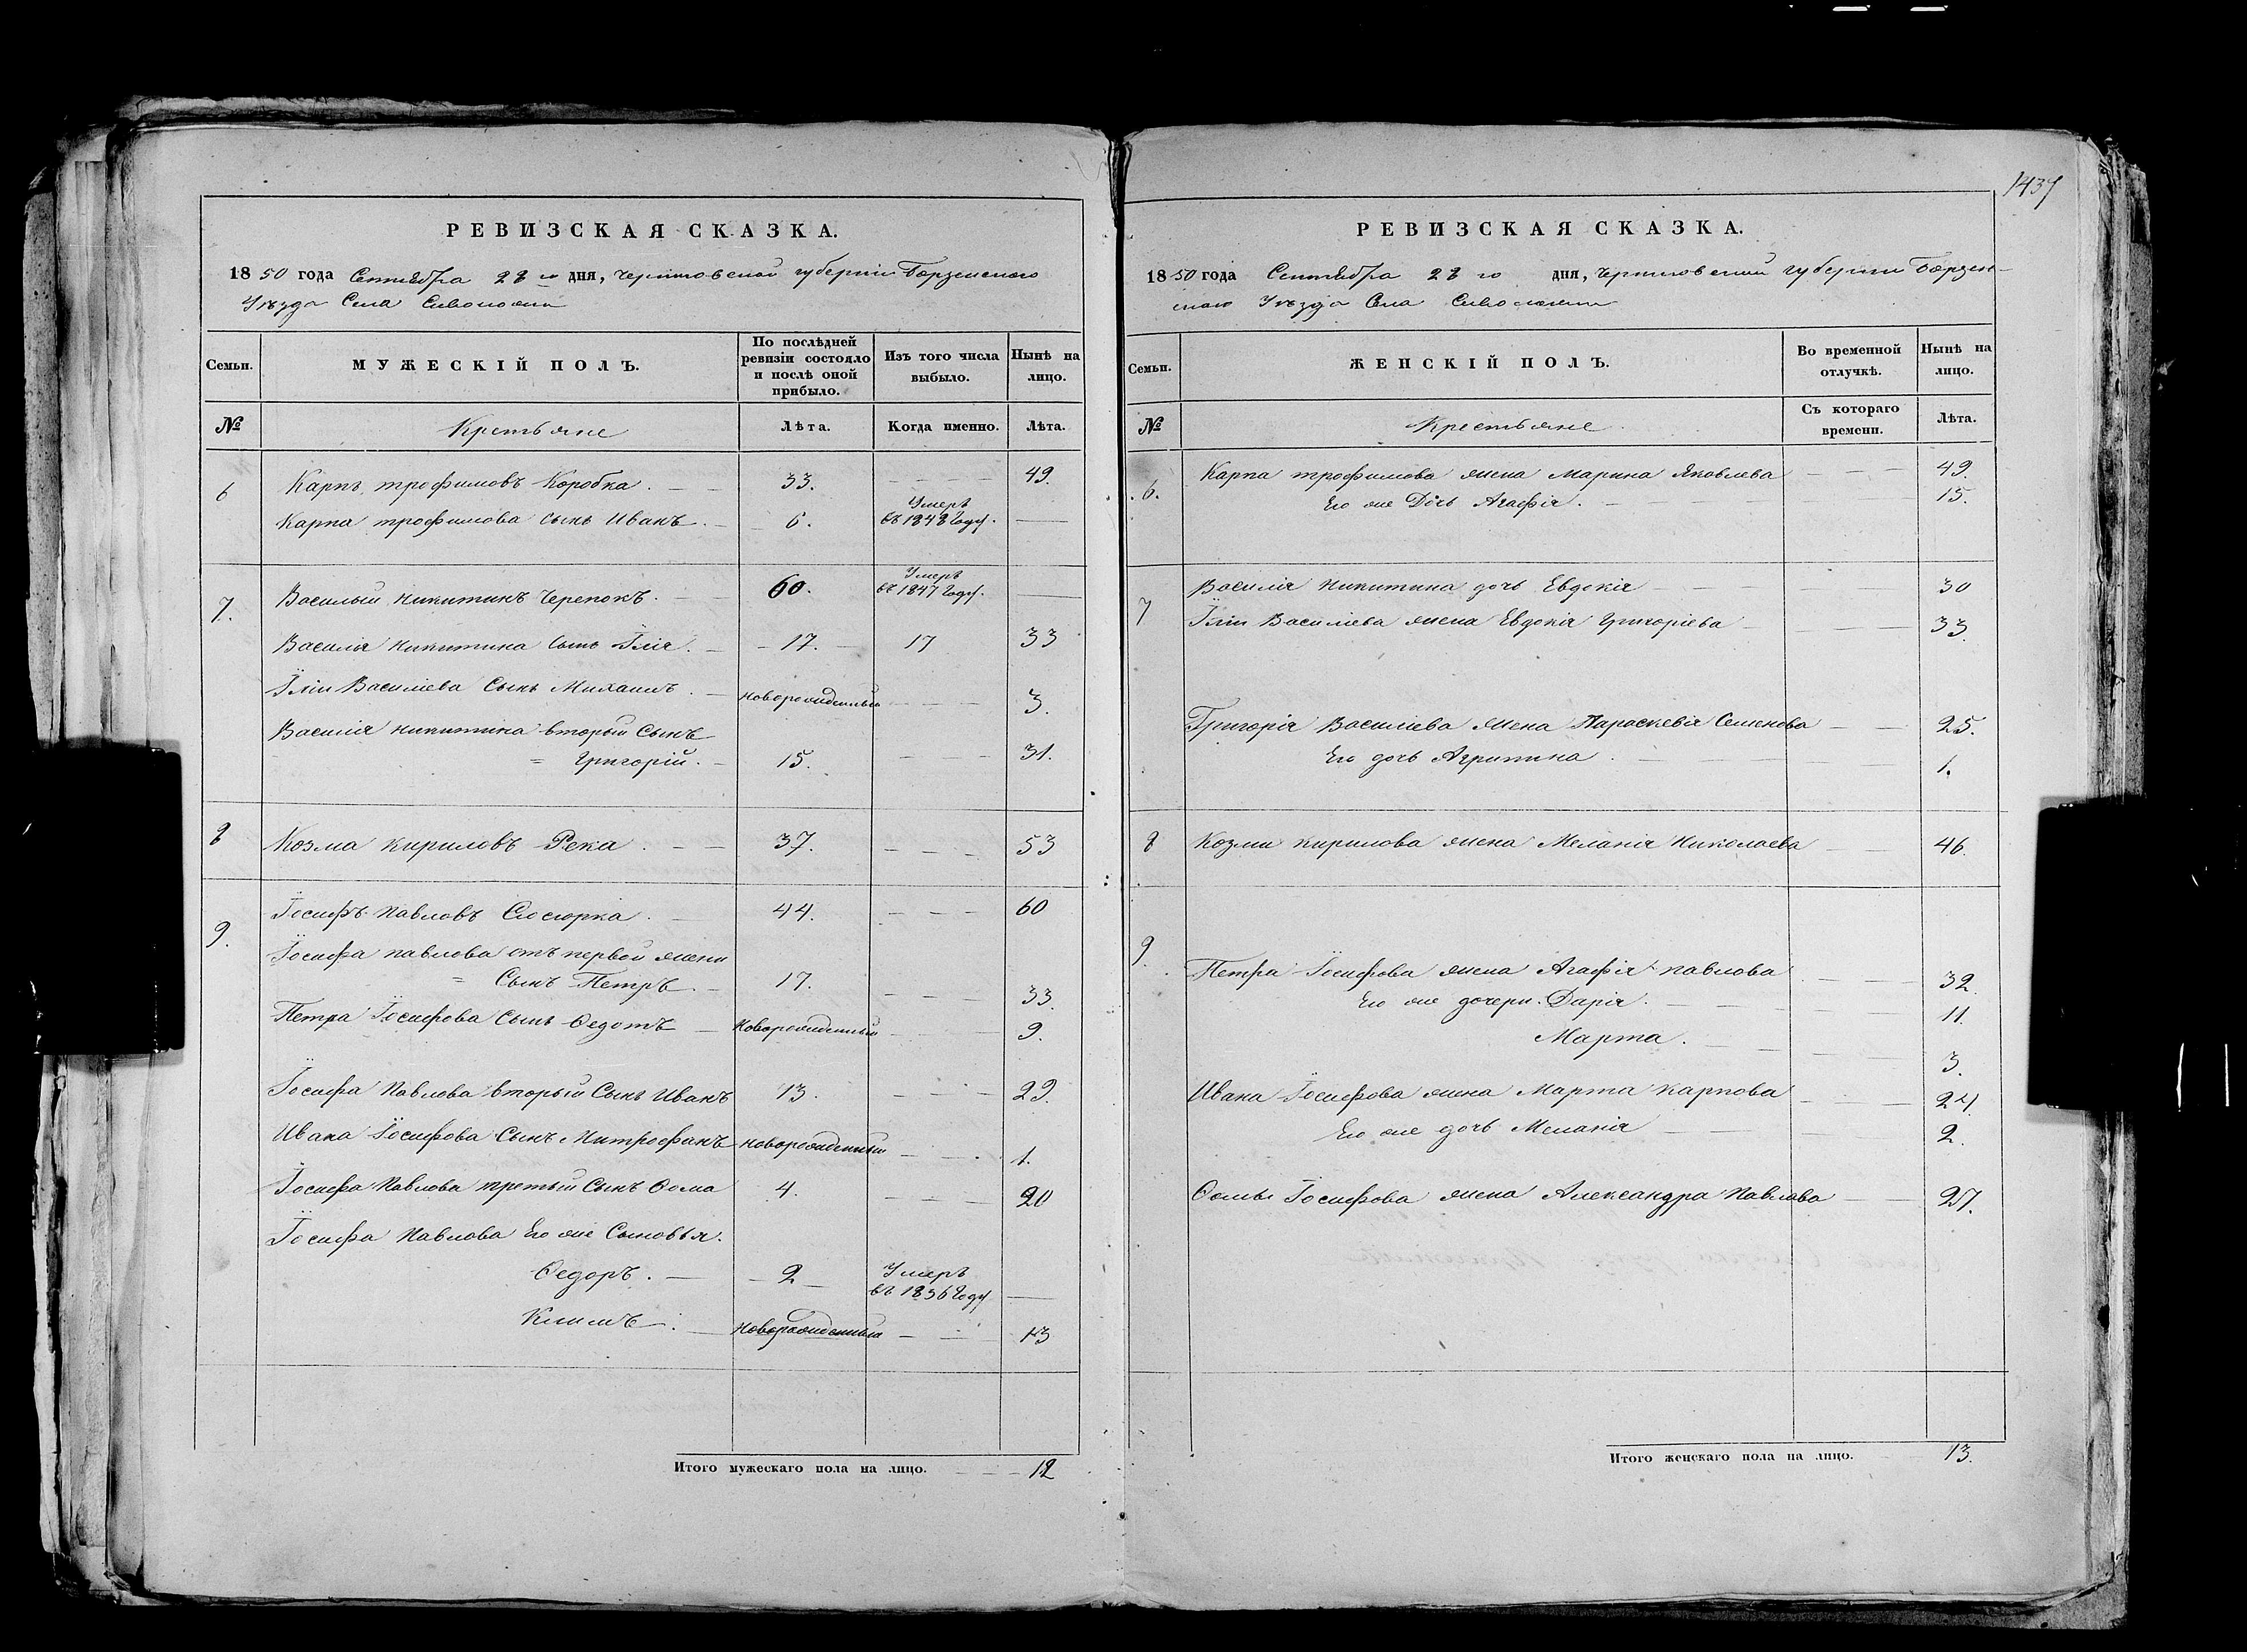 1437
РЕВИЗСКАЯ СКАЗКА.
1850 года Сентября 28 го дня, Черниговской губернiи Борзенского
Уѣзда Села Сиволожи
Семьи.
МУЖЕСКIЙ ПОЛЪ.
По послѣдней ревизiи состояло и послѣ оной прибыло.
Изъ того числа выбыло.
Нынѣ на лицо.
№
Крестьяне
Лѣта.
Когда именно.
Лѣта.
6 Карпъ трофимовъ Коробка. 33. 49.
Карпа трофимова сынъ Иванъ. 6. Умеръ въ 1848 Году.
7. Василый Никитинъ Черепокъ. 60. Умеръ въ 1847 Году.
Василiя Никитина Сынъ Iлiя. 17. 17 33
Iлiи Василiева Сынъ Михаилъ. новорожденный 3.
Василiя Никитина вторый Сынъ
= Григорiй. 15. 31.
8 Козма Кириловъ Река. 37. 53
9. Iосифъ Павловъ Слюсюрка. 44. 60
Iосифа павлова отъ первой жены
= Сынъ Петръ. 17. 33.
Петра Iосифова Сынъ Ѳедотъ новорожденный 9.
Iосифа Павлова вторый Сынъ Иванъ 13. 29.
Ивана Iосифова Сынъ Митрофанъ новорожденный 1.
Iосифа Павлова третый Сынъ Ѳома 4. 20
Iосифа Павлова Его же Сыновья.
Ѳедоръ. 2 Умеръ въ 1836 Году
Климъ. новорожденный 13
Итого мужескаго пола на лицо. 12
РЕВИЗСКАЯ СКАЗКА.
1850 года Сентября 28 го дня, Черниговской губернiи Борзен-
скаго Уѣзда Села Сиволожи
Семьи.
ЖЕНСКIЙ ПОЛЪ.
Во временной отлучкѣ.
Нынѣ на лицо.
№
Крестьяне
Съ котораго времени.
Лѣта.
6. Карпа трофимова жена Марина Яковлева 49.
Его же Дочь Агафiя. 15.
7 Василiя Никитина дочь Евдокiя 30
Iлiи Василiева жена Евдокiя Григорiева 33.
Григорiя Василiева жена Параскевiя Семенова 25.
Его дочь Агрипина. 1.
8 Козми Кирилова жена Меланiя Николаева 46.
9. Петра Iосифова жена Агафiя павлова 32.
Его же дочери. Дарiя. 11.
Марта. 3.
Ивана Iосифова жена Марта Карпова 24
Его же дочь Меланiя 2.
Ѳомы Iосифова жена Александра Павлова
Итого женскаго пола на лицо. 13.